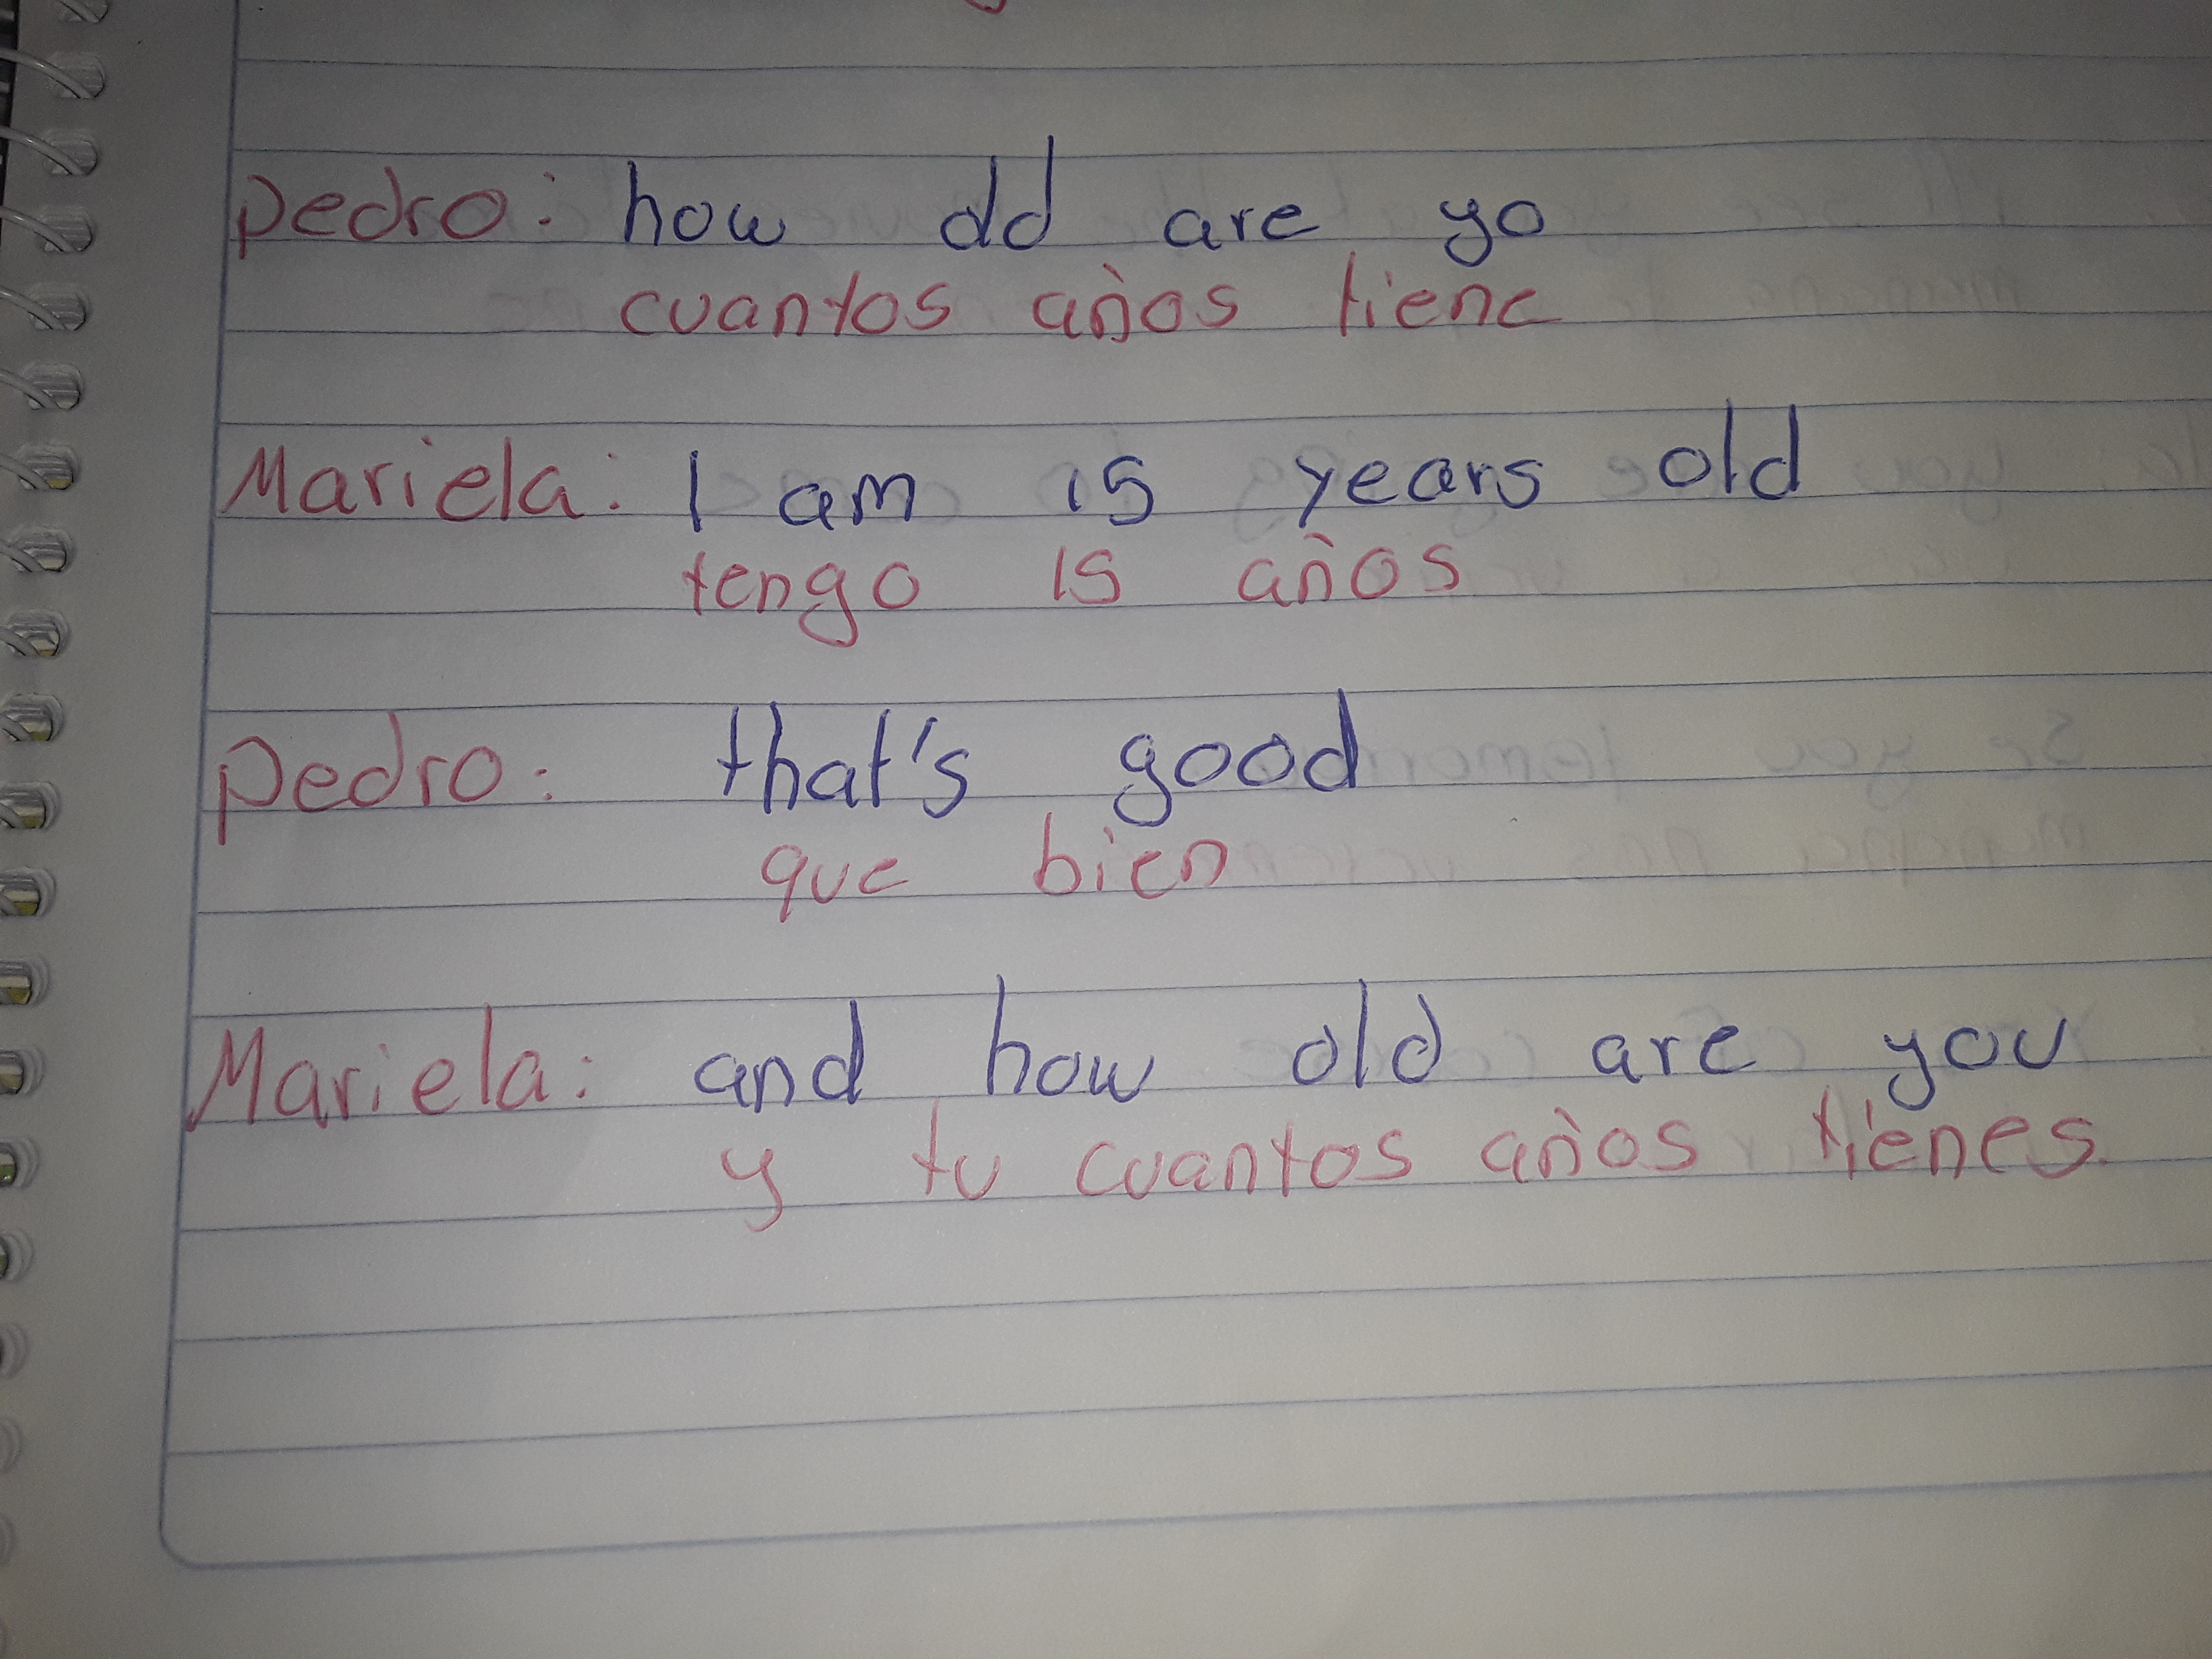 pedro: how old are yo
cuantos años tiene
Mariela: I am 15 years old
tengo 15 años
pedro: that's good
que bien
Mariela: and how old are you
y tu cuantos años tienes.